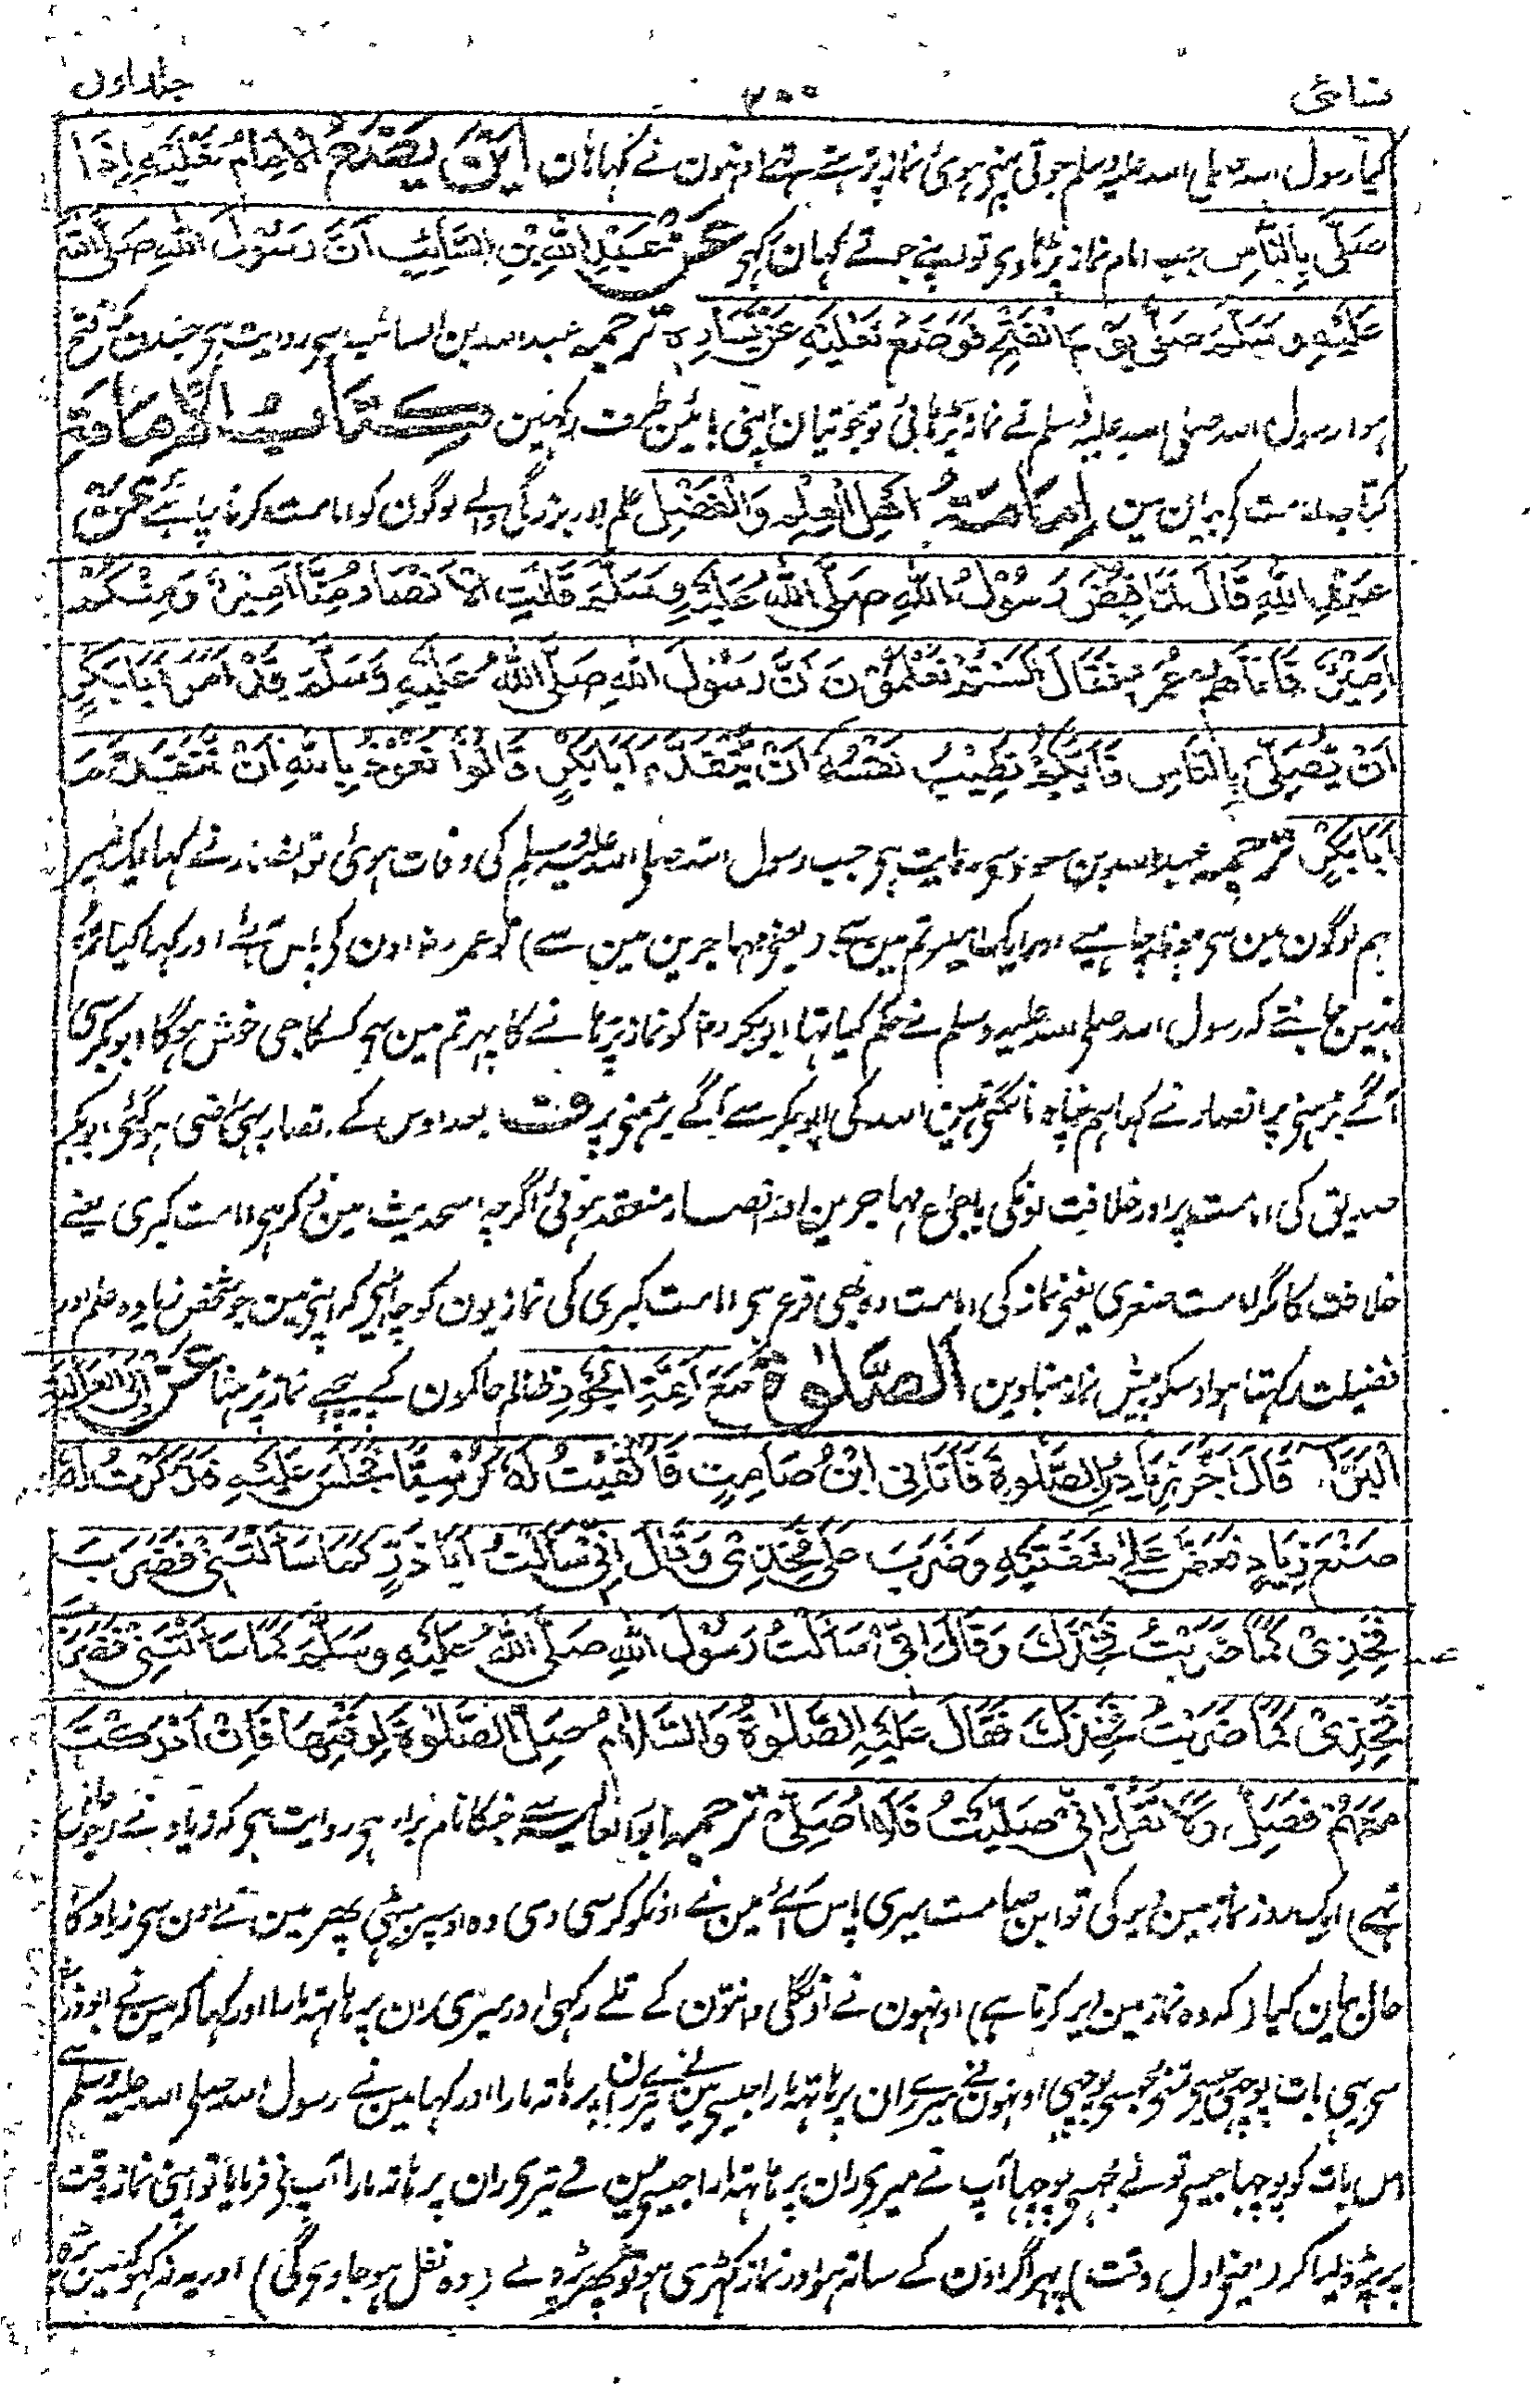 نسائی ٣٠٠ جلد اول
کیا رسول اسد صلی اسد علیہ وسلم جوتی پہنی ہوئی نماز پڑہتے تہے اونہون نے کہا ہان اَیْنَ یَضَعُ الْاِمَامُ نَعْلَیْہِ اِذَا
صَلّٰی بِالنَّاسِ جب امام نماز پڑہاوی تو اپنے جوتے کہان رکہی عَنْ عَبْدِ اللّٰہِ بْنِ السَّائِبِ اَنَّ رَسُوْلَ اللّٰہِ صَلَّی اللّٰہُ
عَلَیْہِ وَسَلَّمَ صَلّٰی یَوْمَ الْفَتْحِ فَوَضَعَ نَعْلَیْہِ عَنْ یَّسَارِہٖ ترجمہ عبد اسد بن السائب سی روایت ہی جسدن مکہ فتح
ہوا رسول اسد صلی اسد علیہ وسلم نے نماز پڑہائی تو جوتیان اپنی بائین طرف رکہین کِتَابُ الْاِمَامَۃِ
کتاب امامت کی بیان مین اِمَامَۃُ اَھْلِ الْعِلْمِ وَالْفَضْلِ علم اور بزرگی والے لوگون کو امامت کرنا چاہئے عَنْ
عَبْدِ اللّٰہِ قَالَ لَمَّا قُبِضَ رَسُوْلُ اللّٰہِ صَلَّی اللّٰہُ عَلَیْہِ وَسَلَّمَ قَالَتِ الْاَنْصَارُ مِنَّا اَمِیْرٌ وَمِنْکُمْ
اَمِیْرٌ فَاَتَاھُمْ عُمَرُ فَقَالَ اَلَسْتُمْ تَعْلَمُوْنَ اَنَّ رَسُوْلَ اللّٰہِ صَلَّی اللّٰہُ عَلَیْہِ وَسَلَّمَ قَدْ اَمَرَ اَبَا بَکْرٍ
اَنْ یُّصَلِّیَ بِالنَّاسِ فَاَیُّکُمْ تَطِیْبُ نَفْسُہٗ اَنْ یَّتَقَدَّمَ اَبَا بَکْرٍ قَالُوْا نَعُوْذُ بِاللّٰہِ اَنْ نَّتَقَدَّمَ
اَبَا بَکْرٍ ترجمہ عبد اسد بن مسعود سی روایت ہی جب رسول اسد صلی اسد علیہ وسلم کی وفات ہوئی تو انصار نے کہا ایک امیر
ہم لوگون مین سی ہونا چاہیے اور ایک امیر تم مین سی (یعنی مہاجرین مین سے) تو عمر رض اون کی پاس آئے اور کہا کیا تم
نہین جانتے کہ رسول اسد صلی اسد علیہ وسلم نے حکم کیا تہا ابو بکر رض کو نماز پڑہانے کا پہر تم مین سی کسکا جی خوش ہوگا ابو بکر سی
آگے بڑہنی پر انصار نے کہا ہم پناہ مانگتی ہین اسد کی ابو بکر سے آگے بڑہنی پر ف بعد اوس کے انصار بہی راضی ہوگئی ابو بکر
صدیق کی امامت پر اور خلافت اونکی باجماع مہاجرین اور انصار منعقد ہوئی اگرچہ اسحدیث مین ذکر ہی امامت کبری یعنے
خلافت کا مگر امامت صغری یعنی نماز کی امامت وہ بھی فرع ہی امامت کبری کی نمازیون کو چاہئی کہ اپنی مین جو شخص زیادہ علم اور
فضیلت رکہتا ہو اوسکو پیش نماز بناوین اَلصَّلٰوۃُ مَعَ اَئِمَّۃِ الْجَوْرِ ظالم حاکمون کے پیچھے نماز پڑہنا عَنْ اَبِی الْعَالِیَۃِ
الْبَرَّاءِ قَالَ اَخَّرَ زِیَادٌ الصَّلٰوۃَ فَاَتَانِی ابْنُ صَامِتٍ فَاَلْقَیْتُ لَہٗ کُرْسِیًّا فَجَلَسَ عَلَیْہِ فَذَکَرْتُ لَہٗ
صُنْعَ زِیَادٍ فَعَضَّ عَلٰی شَفَتَیْہِ وَضَرَبَ عَلٰی فَخِذِیْ وَقَالَ اِنِّیْ سَاَلْتُ اَبَا ذَرٍّ کَمَا سَاَلْتَنِیْ فَضَرَبَ
فَخِذِیْ کَمَا ضَرَبْتُ فَخِذَکَ وَقَالَ اِنِّیْ سَاَلْتُ رَسُوْلَ اللّٰہِ صَلَّی اللّٰہُ عَلَیْہِ وَسَلَّمَ کَمَا سَاَلْتَنِیْ فَضَرَبَ
فَخِذِیْ کَمَا ضَرَبْتُ فَخِذَکَ فَقَالَ عَلَیْہِ الصَّلٰوۃُ وَالسَّلَامُ صَلِّ الصَّلٰوۃَ لِوَقْتِھَا فَاِنْ اَدْرَکْتَ
مَعَھُمْ فَصَلِّ وَلَا تَقُلْ اِنِّیْ صَلَّیْتُ فَلَا اُصَلِّیْ ترجمہ ابو العالیہ سے جنکا نام براء ہی روایت ہی کہ زیاد نے (جو حاکم
تہے) ایک روز نماز مین دیر کی تو ابن صامت میری پاس آئے مین نے اونکو کرسی دی وہ اوسپر بیٹہی پھر مین نے اون سی زیاد کا
حال بیان کیا (کہ وہ نماز مین دیر کرتا ہے) اونہون نے اونگلی دانتون کے تلے رکہی اور میری ران پر ہاتہ مارا اور کہا کہ مین نے ابوذر
سی یہی بات پوچہی جیسی تمنی مجہسی پوچہی اونہون نے میرے ران پر ہاتہ مارا جیسی مین نے تیرے ران پر ہاتہ مارا اور کہا مین نے رسول اسد صلی اسد علیہ وسلم سے
اس بات کو پوچہا جیسی تو نے مجہسی پوچہا آپ نے میری ران پر ہاتہ مارا جیسی مین نے تیری ران پر ہاتہ مارا آپ نی فرمایا تو اپنی نماز وقت
پر پڑہ لیا کر (یعنی اول وقت) پہر اگر اون کے ساتہ ہو اور نماز کہڑی ہو تو پھر پڑہ لے (وہ نفل ہو جاویگی) اور یہ نہ کہو کہ مین پڑہ